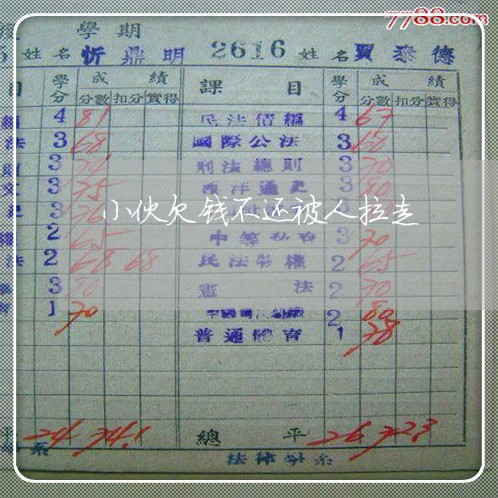 7788.com
學期
姓名 忻鼎明 2616 姓名 賈泰德
目 學分 成績 課目 學分 成績
分數 扣分 實得 分數 扣分 實得
4 81 民法債編 4 67
法 3 68 國際公法 3 60
3 刑法總則 3 70
3 75 西洋通史 3 80
3 76 3
小伙欠钱不还被人拉走
2 65 3 70
法 2 68 68 民法物權 2 65
3 80 憲法 2 70
1 70 2 80
普通體育 1 78
平 24 74.1 總平 26 72.3
系 法律學系